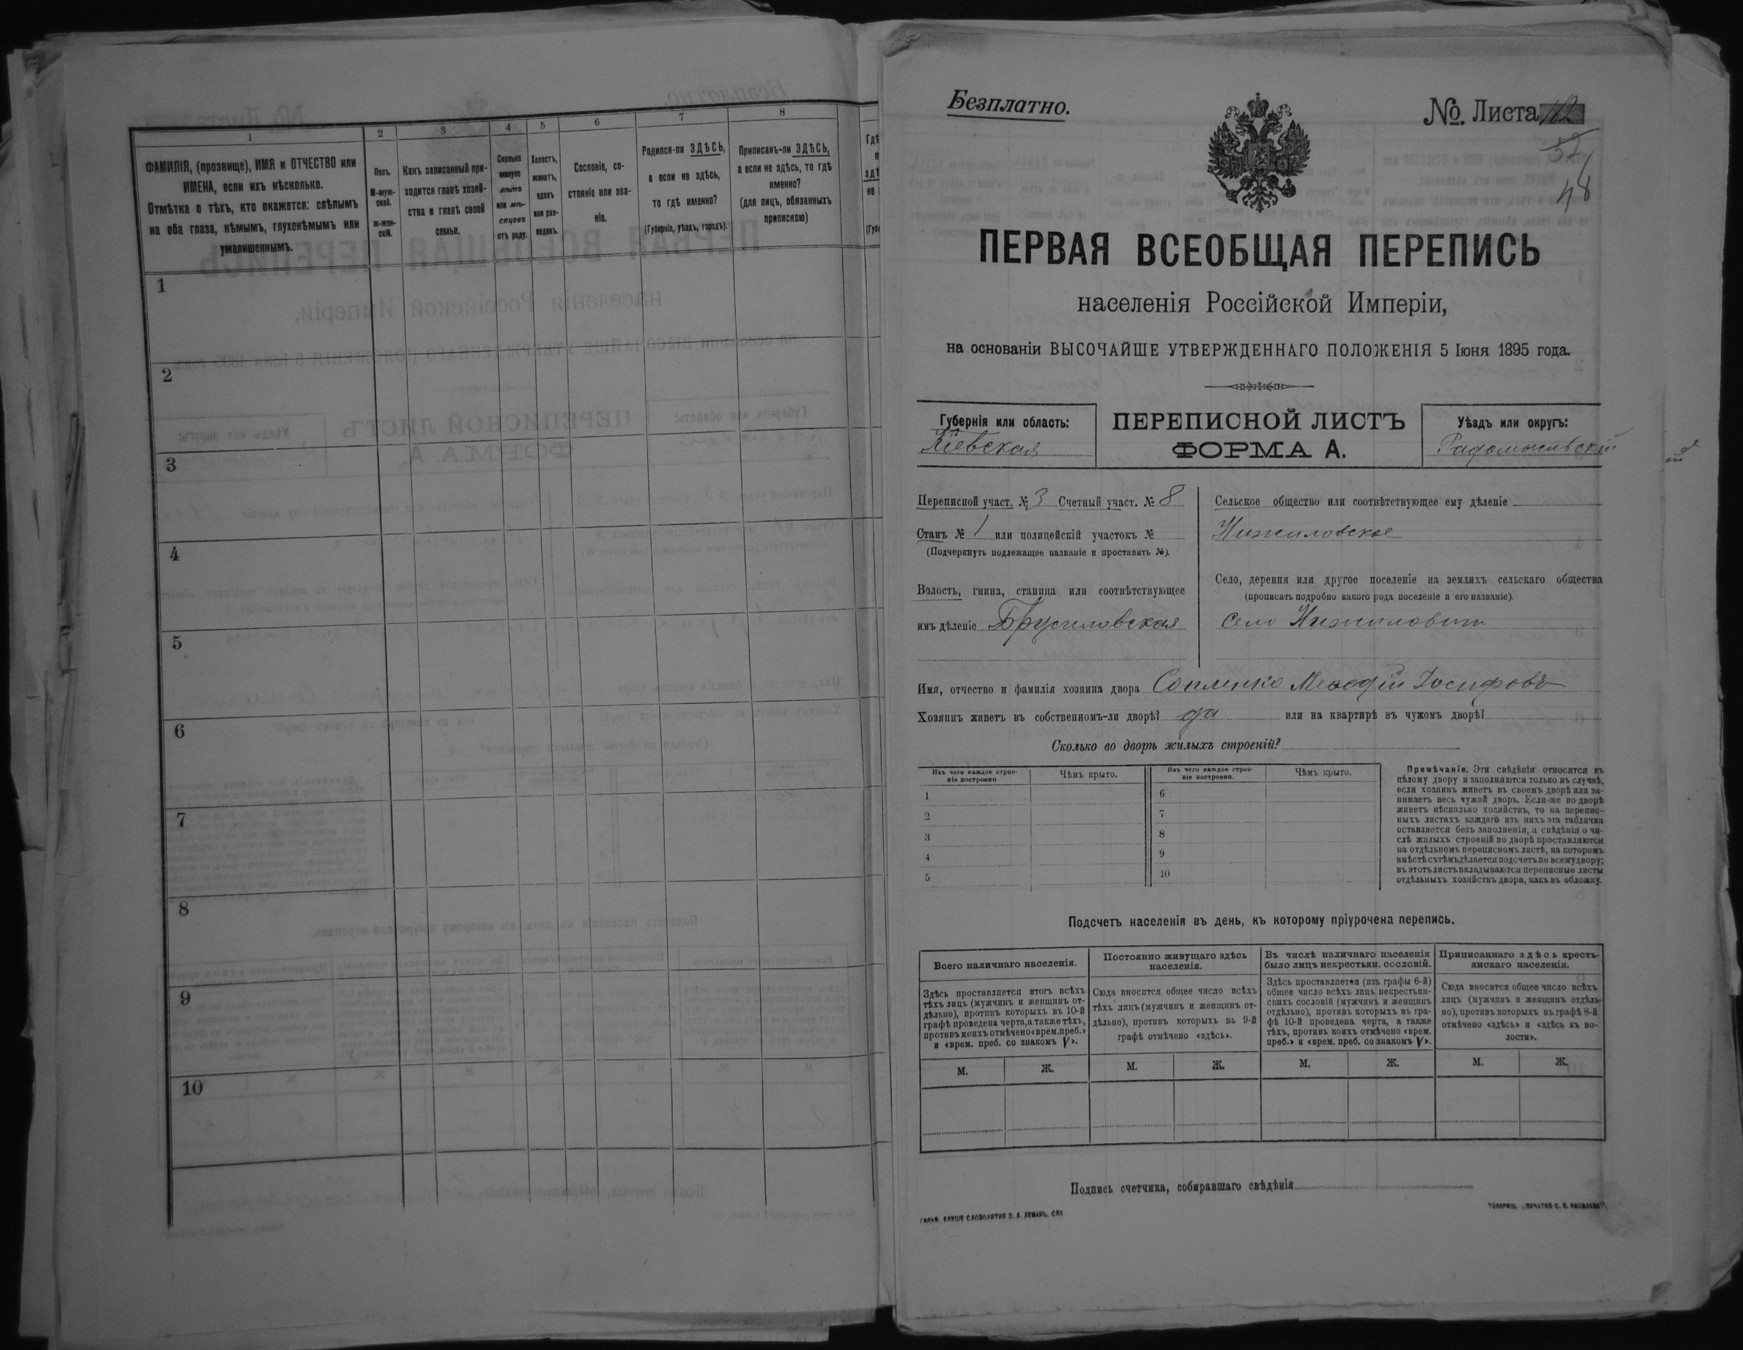 1
2
3
4
5
6
7
8
ФАМИЛІЯ, (прозвище), ИМЯ и ОТЧЕСТВО или
ИМЕНА, если ихъ нѣсколько.
Отмѣтка о тѣхъ, кто окажется: слѣпымъ
на оба глаза, нѣмымъ, глухонѣмымъ или
умалишеннымъ.
Полъ.
М-муж-
ской.
Ж-жен-
скій.
Какъ записанный при-
ходится главѣ хозяй-
ства и главѣ своей
семьи.
Сколько
минуло
лѣтъ
или мѣ-
сяцевъ
отъ роду.
Холостъ,
женатъ,
вдовъ
или раз-
веденъ.
Сословіе, со-
стояніе или зва-
ніе.
Родился-ли ЗДѢСЬ,
а если не здѣсь,
то гдѣ именно?
(Губернія, уѣздъ, городъ).
Приписанъ-ли ЗДѢСЬ,
а если не здѣсь, то гдѣ
именно?
(для лицъ, обязанныхъ
припискою)
1
2
3
4
5
6
7
8
9
10
Безплатно.
№ Листа
48
ПЕРВАЯ ВСЕОБЩАЯ ПЕРЕПИСЬ
населенія Россійской Имперіи,
на основаніи ВЫСОЧАЙШЕ УТВЕРЖДЕННАГО ПОЛОЖЕНІЯ 5 Іюня 1895 года.
Губернія или область:
Кіевская
ПЕРЕПИСНОЙ ЛИСТЪ
ФОРМА А.
Уѣздъ или округъ:
Радомысльскій
Переписной участ. № 3 Счетный участ. № 8
Станъ № 1 или полицейскій участокъ №
(Подчеркнуть подлежащее названіе и проставить №).
Волость, гмина, станица или соотвѣтствующее
имъ дѣленіе Брусиловская
Сельское общество или соотвѣтствующее ему дѣленіе
Нижиловское
Село, деревня или другое поселеніе на земляхъ сельскаго общества
(прописать подробно какого рода поселеніе и его названіе).
Село Нижиловичи
Имя, отчество и фамилія хозяина двора Меѳодій Іосифовъ
Хозяинъ живетъ въ собственномъ-ли дворѣ? да или на квартирѣ въ чужомъ дворѣ?
Сколько во дворѣ жилыхъ строеній?
Изъ чего каждое строе-
ніе построено
Чѣмъ крыто.
Изъ чего каждое строе-
ніе построено.
Чѣмъ крыто.
1
2
3
4
5
6
7
8
9
10
Примѣчаніе. Эти свѣдѣнія относятся къ
цѣлому двору и заполняются только въ случаѣ,
если хозяинъ живетъ въ своемъ дворѣ или за-
нимаетъ весь чужой дворъ. Если-же во дворѣ
живетъ нѣсколько хозяйствъ, то на перепис-
ныхъ листахъ каждаго изъ нихъ эта табличка
оставляется безъ заполненія, а свѣдѣнія о чи-
слѣ жилыхъ строеній во дворѣ проставляются
на отдѣльномъ переписномъ листѣ, на которомъ
вмѣстѣ съ тѣмъ дѣлается подсчетъ по всему двору;
въ этотъ листъ вкладываются переписные листы
отдѣльныхъ хозяйствъ двора, какъ въ обложку.
Подсчетъ населенія въ день, къ которому пріурочена перепись.
Всего наличнаго населенія.
Здѣсь проставляется итогъ всѣхъ
тѣхъ лицъ (мужчинъ и женщинъ от-
дѣльно), противъ которыхъ въ 10-й
графѣ проведена черта, а также тѣхъ,
противъ коихъ отмѣчено «врем. преб.»
и «врем. преб. со знакомъ V».
Постоянно живущаго здѣсь
населенія.
Сюда вносится общее число всѣхъ
тѣхъ лицъ (мужчинъ и женщинъ от-
дѣльно), противъ которыхъ въ 9-й
графѣ отмѣчено «здѣсь».
Въ числѣ наличнаго населенія
было лицъ некрестьян. сословій.
Здѣсь проставляется (изъ графы 6-й)
общее число всѣхъ лицъ некрестьян-
скихъ сословій (мужчинъ и женщинъ
отдѣльно), противъ которыхъ въ гра-
фѣ 10-й проведена черта, а также
тѣхъ, противъ коихъ отмѣчено «врем.
преб.» и «врем. преб. со знакомъ V».
Приписаннаго здѣсь кресть-
янскаго населенія.
Сюда вносится общее число всѣхъ
лицъ (мужчинъ и женщинъ отдѣль-
но), противъ которыхъ въ графѣ 8-й
отмѣчено «здѣсь» и «здѣсь къ во-
лости».
М. Ж. М. Ж. М. Ж. М. Ж.
Подпись счетчика, собиравшаго свѣдѣнія